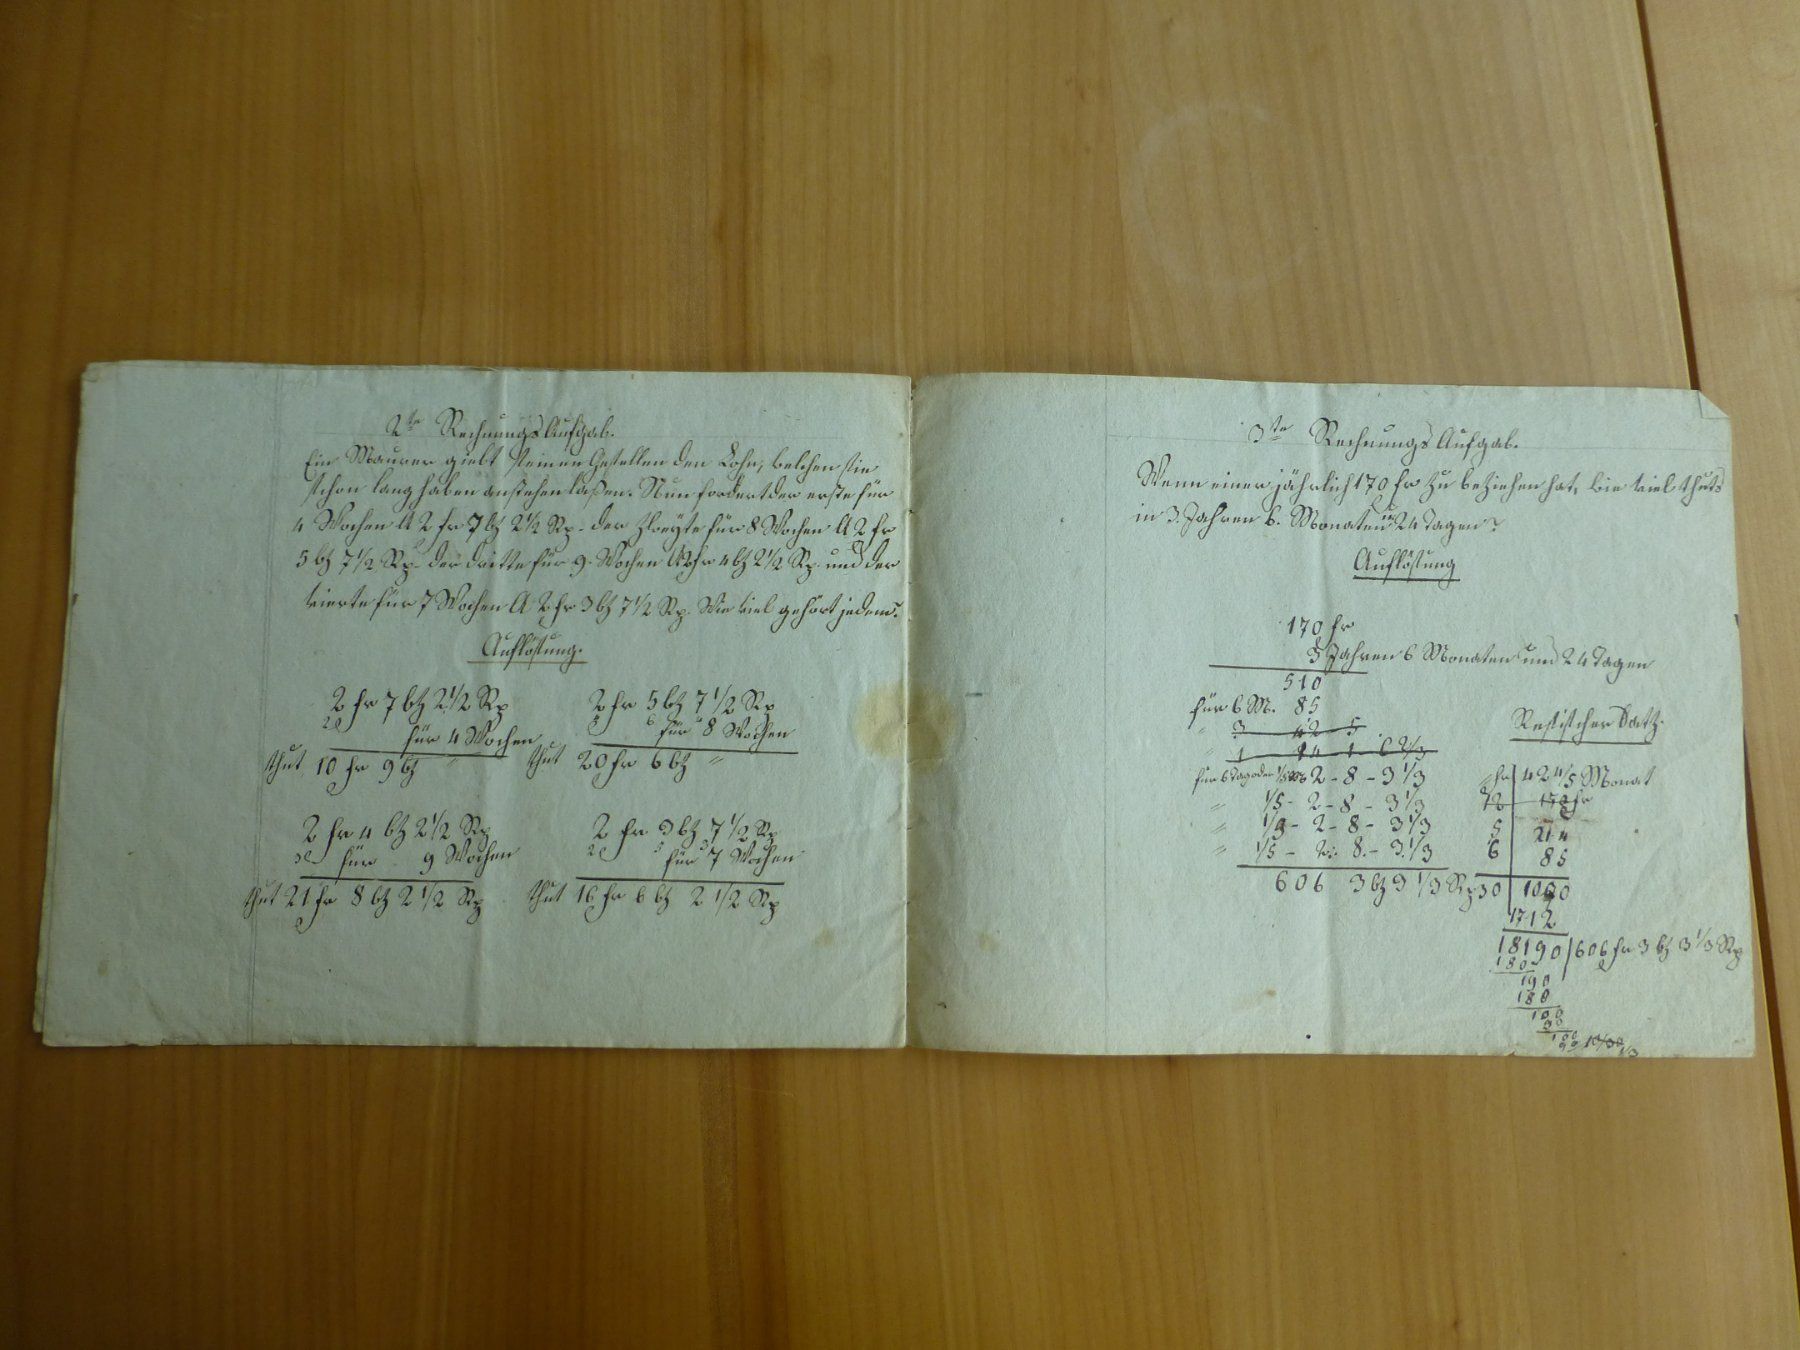 2te Rechnungs Aufgab.
Ein Maurer giebt seinen Gesellen den Lohn, welchen sie
schon lang haben anstehen laßen. Nun fordert der erste für
4 Wochen A 2 fr 7 bz 2 1/2 Rp. der Zweyte für 8 Wochen A 2 fr
5 bz 7 1/2 Rp. der dritte für 9. Wochen A 2 fr 4 bz 2 1/2 Rp. und der
vierte für 7 Wochen A 2 fr 3 bz 7 1/2 Rp. Wie viel gehört jedem?
Auflösung.
2 fr 7 bz 2 1/2 Rp
für 4 Wochen
thut 10 fr 9 bz "
2 fr 5 bz 7 1/2 Rp
für 8 Wochen
thut 20 fr 6 bz "
2 fr 4 bz 2 1/2 Rp
für 9 Wochen
thut 21 fr 8 bz 2 1/2 Rp
2 fr 3 bz 7 1/2 Rp
für 7 Wochen
thut 16 fr 6 bz 2 1/2 Rp
3te Rechnungs Aufgab.
Wenn einer jährlich 170 fr zu beziehen hat, wie viel thuts
in 3. Jahren 6. Monaten 24 Tagen?
Auflösung
170 fr
3 Jahren 6 Monaten und 24 Tagen
510
für 6 M. 85
" 3 42 5
" 1 14 1 6 2/3
für 6 Tag oder 1/5 2 - 8 - 3 1/3
" 1/5 - 2 - 8 - 3 1/3
" 1/5 - 2 - 8 - 3 1/3
" 1/5 - 2. 8. - 3. 1/3
606 3 bz 3 1/3 Rp
Satz.
fr 42 4/5 Monat
12 170 fr
5 214
6 85
30 1070
1712
18190 | 606 fr 3 bz 3 1/3 Rp
180
190
180
100
90
100
90 10/30 1/3